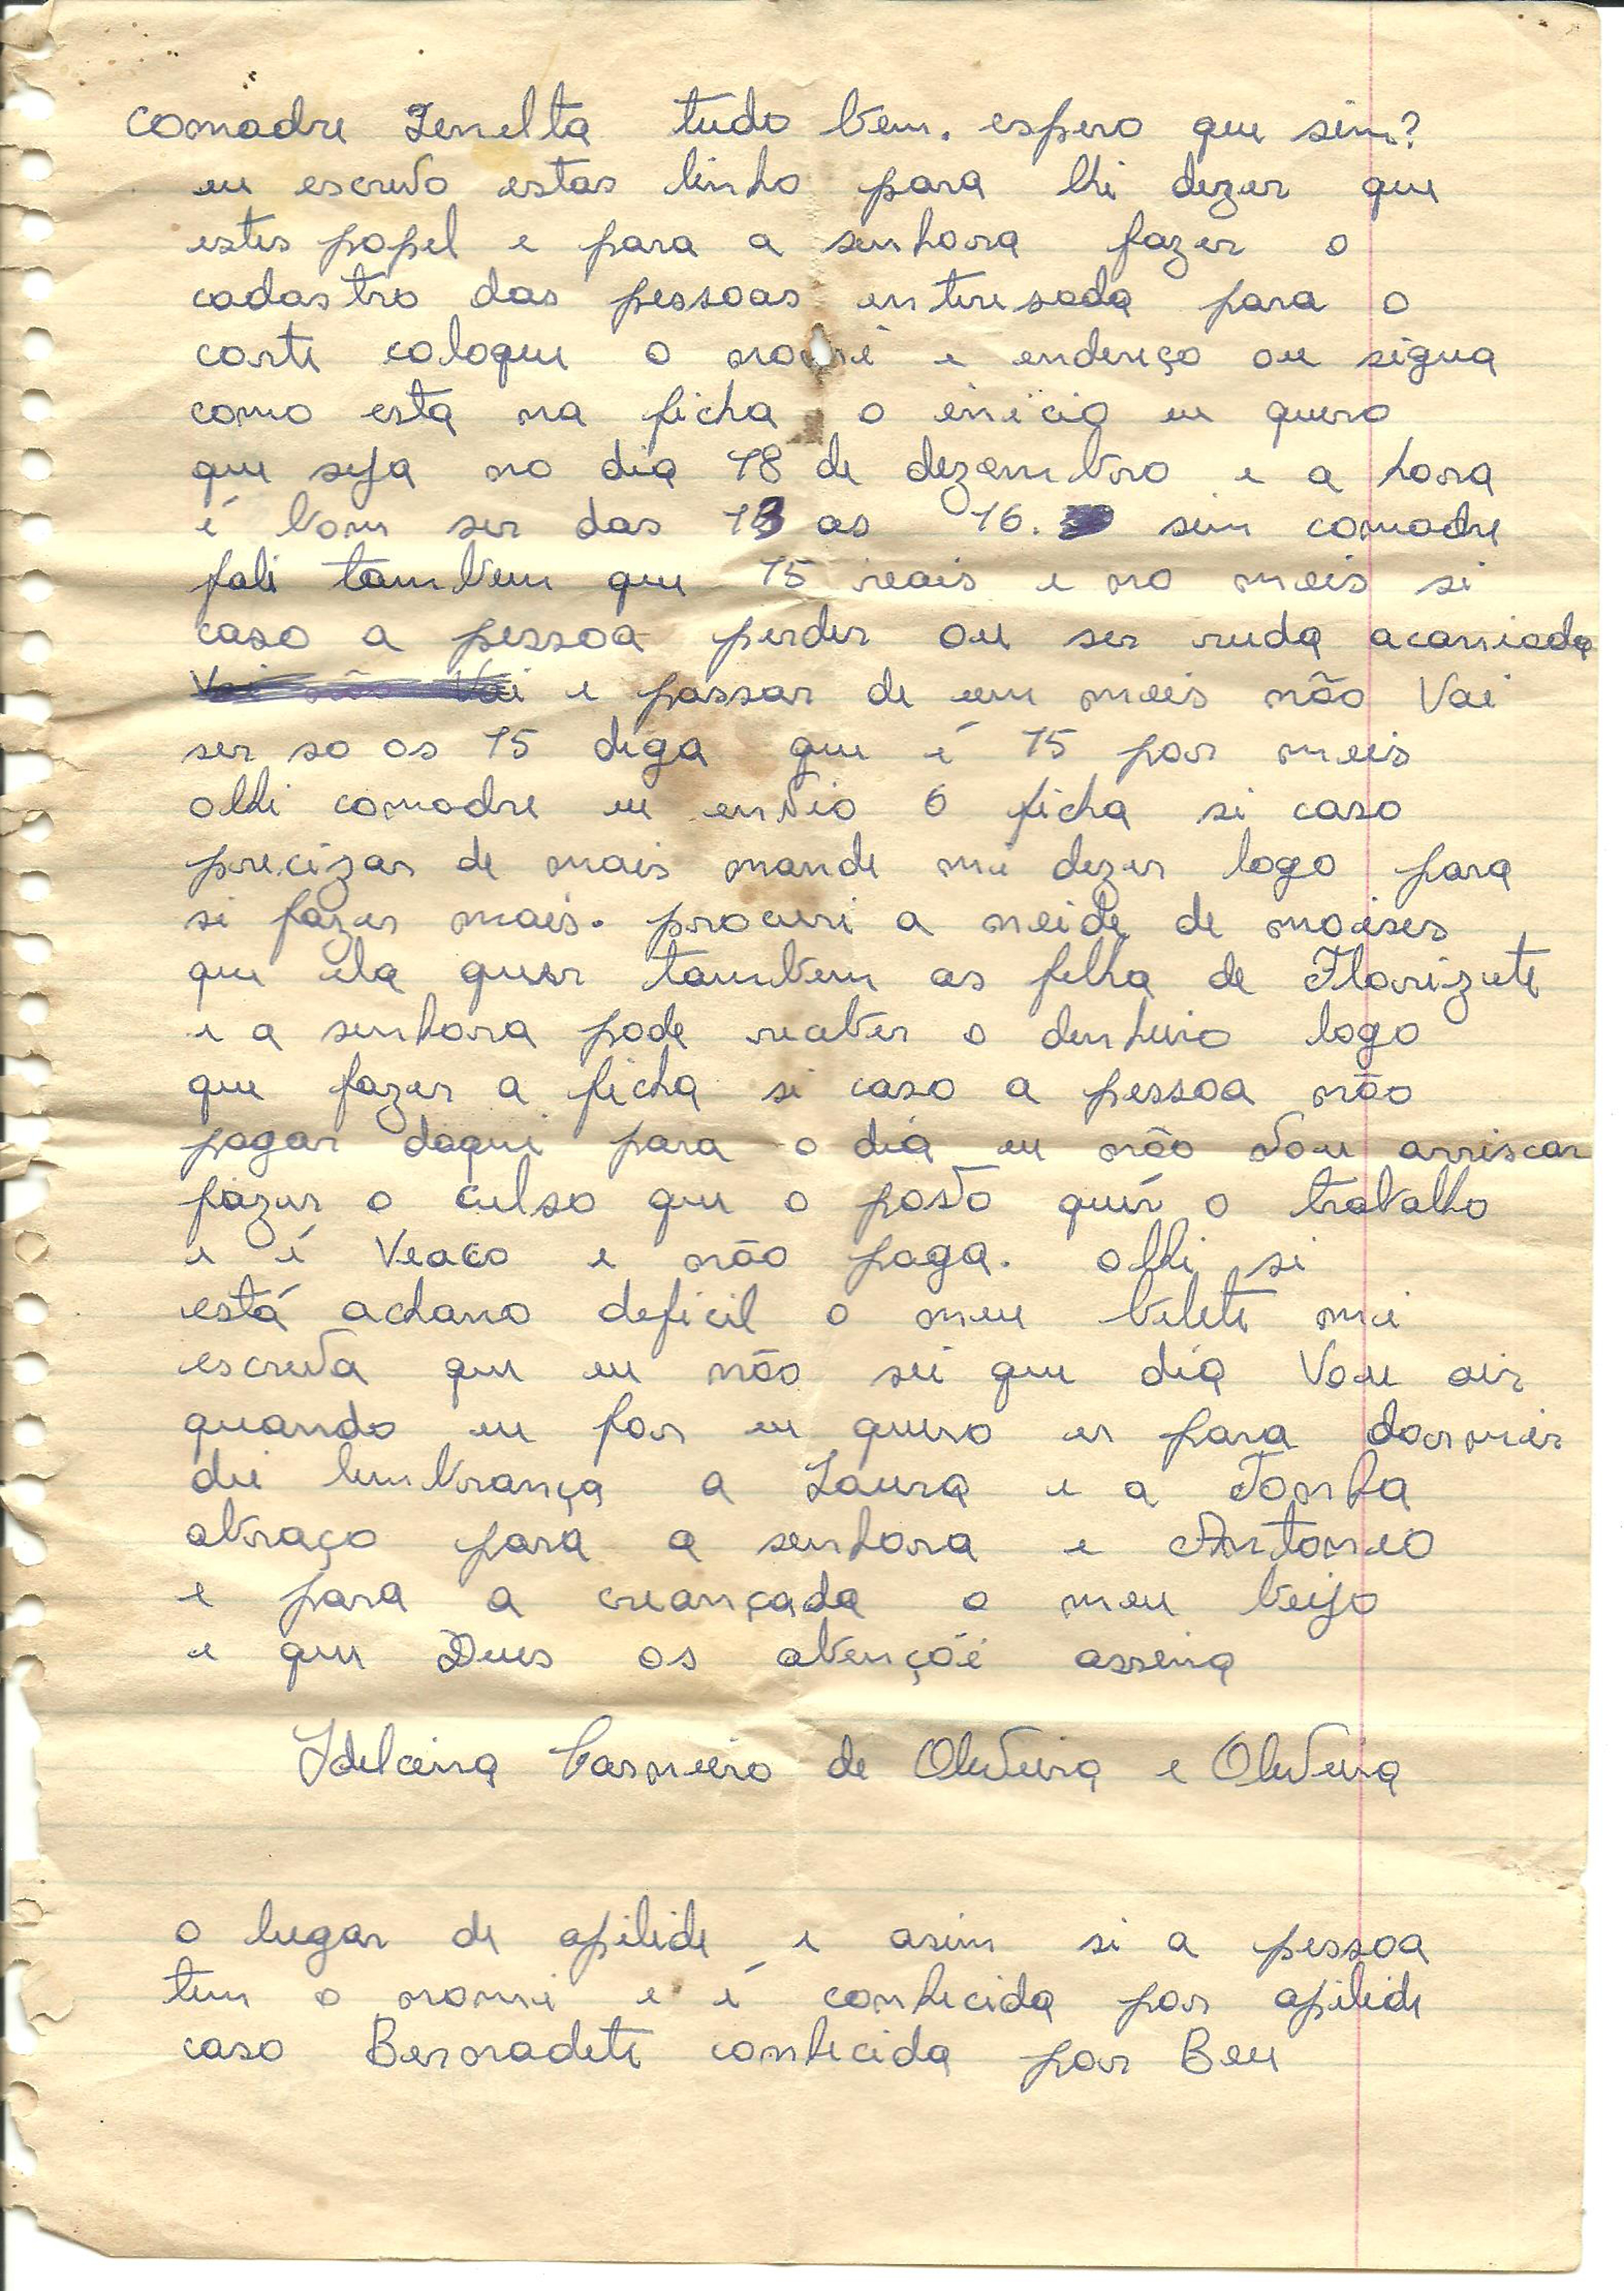 comadre Zenelta tudo bem. espero que sim?
eu escrevo estas linha para lhi dizer que
estes papel e para a senhora fazer o
cadastro das pessoas enteresada para o
corte coloque o nome e endereço ou sigua
como esta na ficha o enicio eu quero
que seja no dia 18 de dezembro e a hora
é bom ser das 13 as 16. sim comadre
fali tambem que 15 reais e no meis si
caso a pessoa perder ou ser ruda
e passar de um meis não Vai
ser so os 15 diga que é 15 por meis
olhi comadre eu envio 6 ficha si caso
precizar de mais mande mi dizer logo para
si fazer mais. procuri a neide de moises
que ela quer tambem as filha de Florizete
e a senhora pode receber o denheiro logo
que fazer a ficha si caso a pessoa não
pagar daqui para o dia eu não vou arriscar
fazer o culso que o povo quer o trabalho
e é Veaco e não paga. olhi si
está achano deficil o meu belete mi
escreva que eu não sei que dia Vou air
quando eu for eu quero er para dormir
dei lembrança a Laura e a Tonha
abraço para a senhora e Antonio
e para a creançada o meu beijo
e que Deus os abençõe assina
Idelceina Carneiro de Oliveira e Oliveira
o lugar de apilide e asim si a pessoa
tem o nome e é conhecida por apilide
caso Bernadete conhecida por Beu